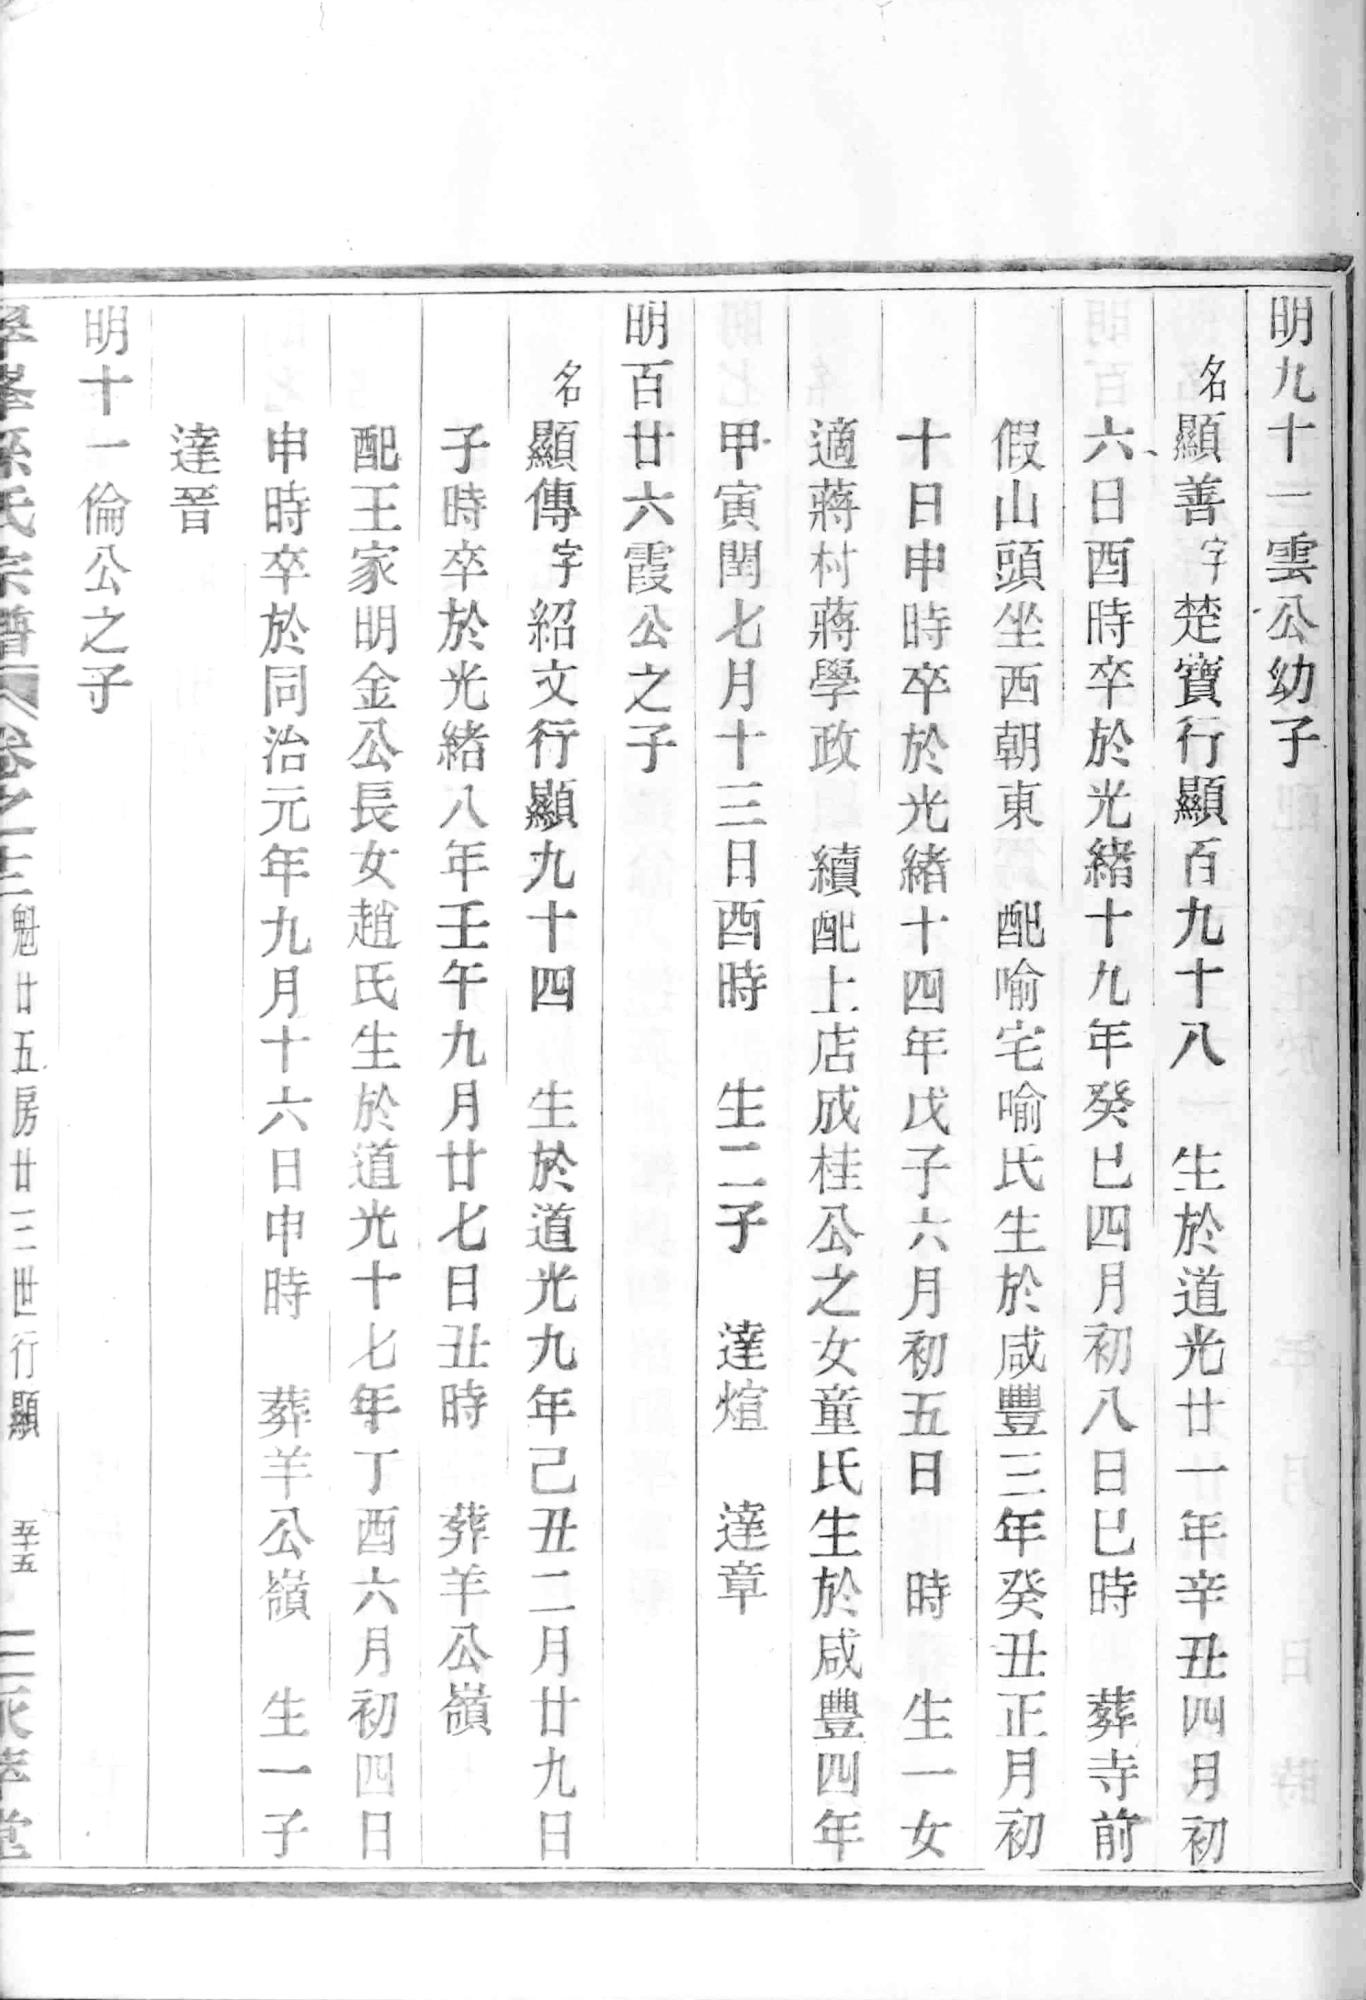 明九十三雲公幼子
名顯善字楚寶行顯百九十八　生於道光廿一年辛丑四月初
六日酉時卒於光緒十九年癸巳四月初八日巳時　葬寺前
假山頭坐西朝東　配喻宅喻氏生於咸豐三年癸丑正月初
十日申時卒於光緒十四年戊子六月初五日　時　生一女
適蔣村蔣學政　續配上店成桂公之女童氏生於咸豐四年
甲寅閏七月十三日酉時　生二子　達煊　達章
明百廿六霞公之子
名顯傳字紹文行顯九十四　生於道光九年己丑二月廿九日
子時卒於光緒八年壬午九月廿七日丑時　葬羊公嶺
配王家明金公長女趙氏生於道光十七年丁酉六月初四日
申時卒於同治元年九月十六日申時　葬羊公嶺　生一子
達晉
明十一倫公之子
孫氏宗譜　卷之十三　魁廿五房廿三世行顯　五　永萃堂